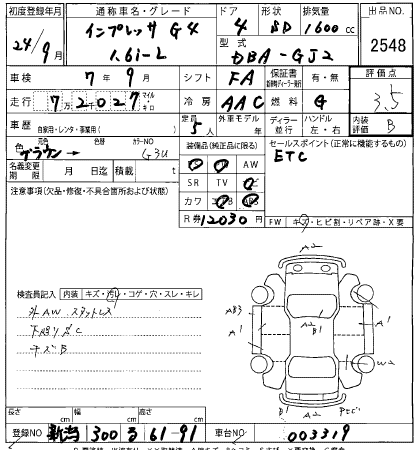 初度登録年月 通称車名・グレード ドア 形状 排気量 出品NO.
24/9月 インプレッサ G4 4 SD 1600cc 2548
1.6i-L 型式 DBA-GJ2
車検 7年9月 シフト FA 保証書 有・無 評価点
走行 7万2027 マイル・キロ 冷房 AAC 燃料 G 3.5
車歴 自家用・レンタ・事業用( ) 定員 5人 外車モデル 年 ディーラー・並行 ハンドル 左・右 内装評価 B
色 元色 ブラウン→ 色替 カラーNO G3U 装備品(純正品に限る) セールスポイント(正常に機能するもの)
ETC
名義変更期限 月 日迄 積載 t
AW
SR TV
カワ
注意事項(欠品・修復・不具合箇所および状態)
R券 12030円 FW キズ・ヒビ割・リペア跡・X要
検査員記入 内装 キズ・汚レ・コゲ・穴・スレ・キレ
外AW スタットレス
下廻りサビC
キズB
A2
AB3
A1
A2
B1
A1
W2
B1
A2
長さ cm 幅 cm 高さ cm
登録NO 300 る 61-91 車台NO 003319